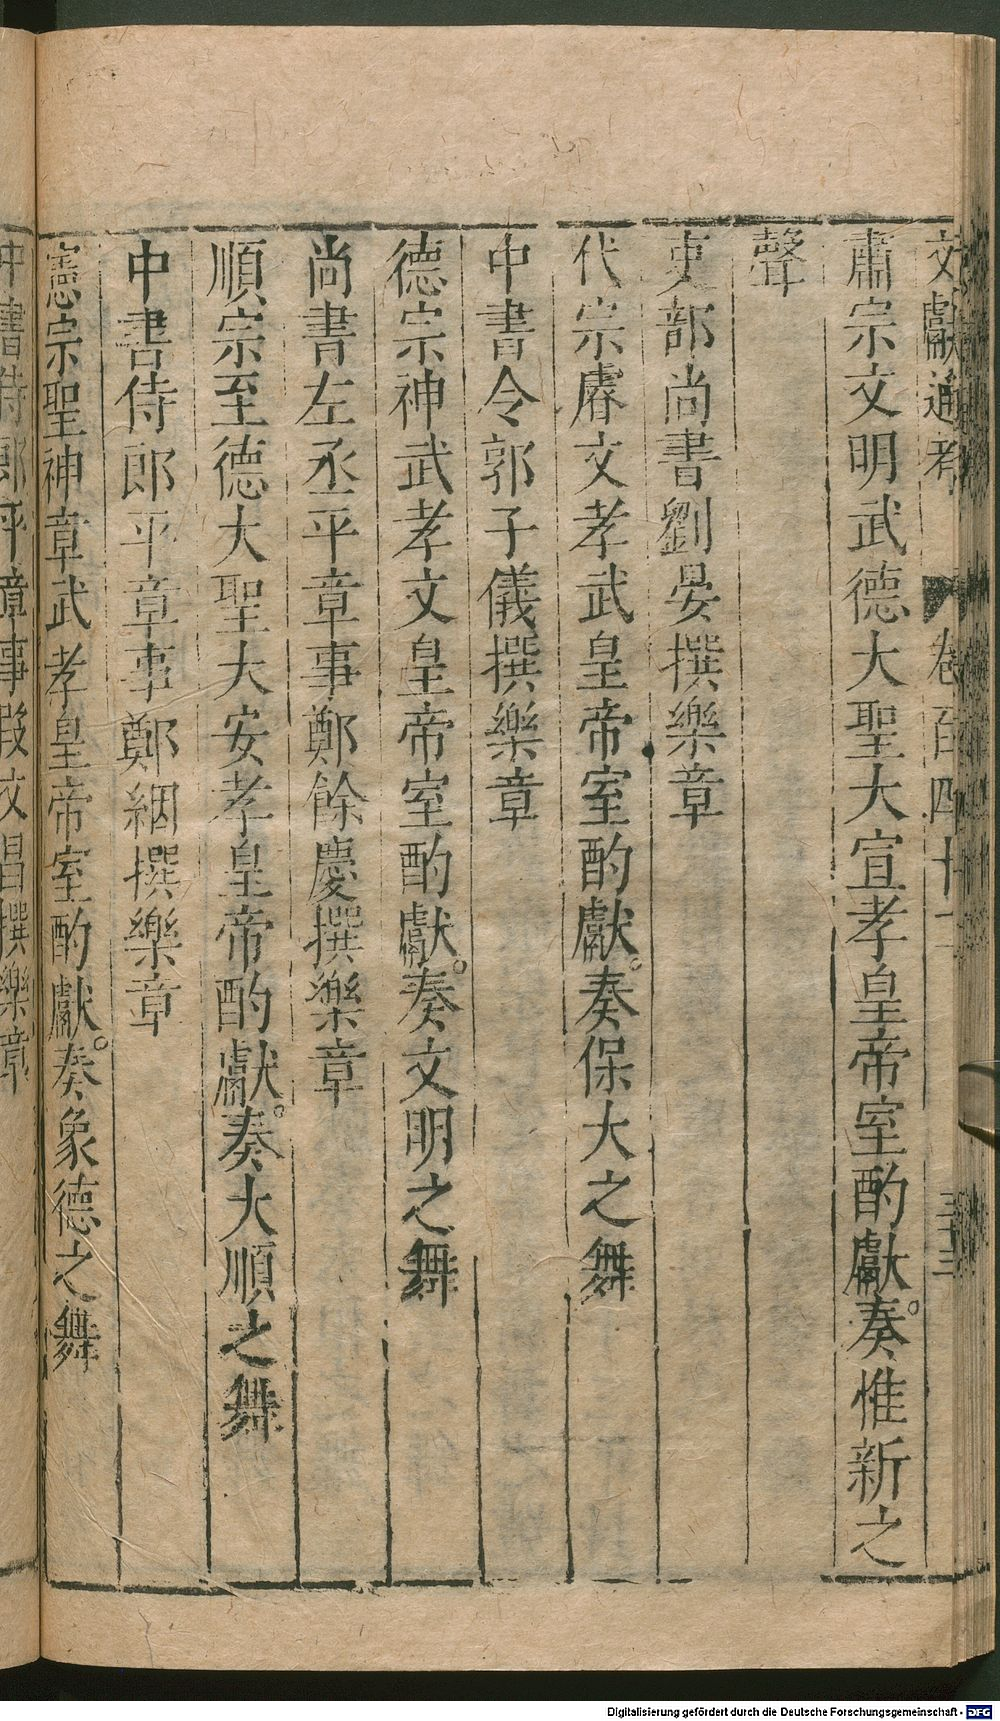 文獻通考 卷百四十一 三十三
肅宗文明武德大聖大宣孝皇帝室酌獻。奏惟新之
聲
吏部尚書劉晏撰樂章
代宗睿文孝武皇帝室酌獻。奏保大之舞
中書令郭子儀撰樂章
德宗神武孝文皇帝室酌獻。奏文明之舞
尚書左丞平章事鄭餘慶撰樂章
順宗至德大聖大安孝皇帝酌獻。奏大順之舞
中書侍郎平章事鄭絪撰樂章
憲宗聖神章武孝皇帝室酌獻。奏象德之舞
中書侍郎平章事段文昌撰樂章
Digitalisierung gefördert durch die Deutsche Forschungsgemeinschaft - DFG